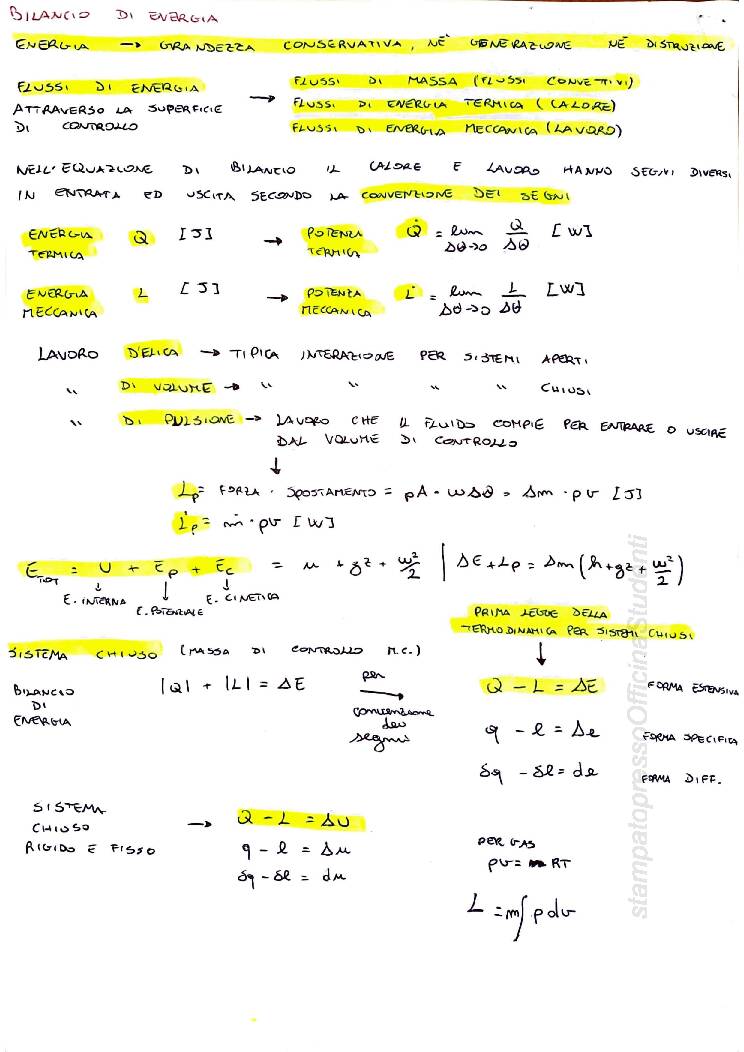 BILANCIO DI ENERGIA
ENERGIA → GRANDEZZA CONSERVATIVA, NÉ GENERAZIONE NÉ DISTRUZIONE
FLUSSI DI ENERGIA
ATTRAVERSO LA SUPERFICIE
DI CONTROLLO
→ FLUSSI DI MASSA (FLUSSI CONVETTIVI)
FLUSSI DI ENERGIA TERMICA (CALORE)
FLUSSI DI ENERGIA MECCANICA (LAVORO)
NELL'EQUAZIONE DI BILANCIO IL CALORE E LAVORO HANNO SEGNI DIVERSI
IN ENTRATA ED USCITA SECONDO LA CONVENZIONE DEI SEGNI
ENERGIA TERMICA Q [J] → POTENZA TERMICA Q̇ = lim Δθ→0 Q/Δθ [W]
ENERGIA MECCANICA L [J] → POTENZA MECCANICA L̇ = lim Δθ→0 L/Δθ [W]
LAVORO D'ELICA → TIPICA INTERAZIONE PER SISTEMI APERTI
" DI VOLUME → " " " " CHIUSI
" DI PULSIONE → LAVORO CHE IL FLUIDO COMPIE PER ENTRARE O USCIRE
DAL VOLUME DI CONTROLLO
↓
Lp = FORZA · SPOSTAMENTO = pA · wΔθ = Δm · pv [J]
L̇p = ṁ · pv [W]
E_TOT = U + Ep + Ec = u + gz + w²/2 | ΔE + Lp = Δm (h + gz + w²/2)
E. INTERNA E. POTENZIALE E. CINETICA
PRIMA LEGGE DELLA
TERMODINAMICA PER SISTEMI CHIUSI
SISTEMA CHIUSO (MASSA DI CONTROLLO M.C.)
BILANCIO
DI
ENERGIA
|Q| + |L| = ΔE
per
→
convenzione
dei
segni
Q - L = ΔE FORMA ESTENSIVA
q - l = Δe FORMA SPECIFICA
δq - δl = de FORMA DIFF.
SISTEMA
CHIUSO
RIGIDO E FISSO
→ Q - L = ΔU
q - l = Δu
δq - δl = du
PER GAS
pv = RT
L = m∫ p dv
stampatopressoOfficinaStudenti